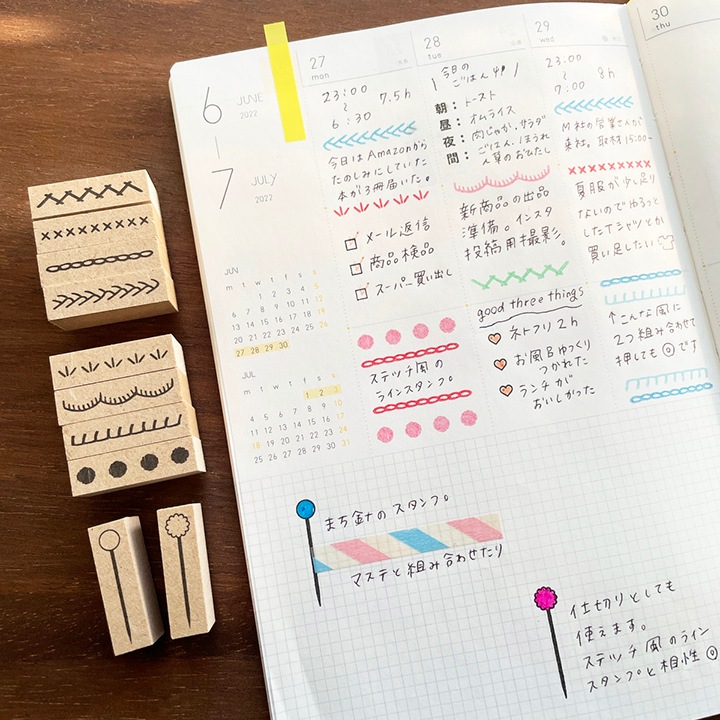 6
JUNE
2022
7
JULY
2022
JUN
m t w t f s s
1 2 3 4 5
6 7 8 9 10 11 12
13 14 15 16 17 18 19
20 21 22 23 24 25 26
27 28 29 30
JUL
m t w t f s s
1 2 3
4 5 6 7 8 9 10
11 12 13 14 15 16 17
18 19 20 21 22 23 24
25 26 27 28 29 30 31
27
mon
23:00
〜
6:30
7.5h
今日はAmazonから
たのしみにしていた
本が3冊届いた。
メール返信
商品検品
スーパー買い出し
ステッチ風の
ラインスタンプ。
28
tue
今日の
ごはん
朝：トースト
昼：オムライス
夜：肉じゃが、サラダ
ごはん、ほうれ
間：ん草のおひたし
新商品の出品
準備。インスタ
投稿用撮影。
good three things
ネトフリ2h
お風呂ゆっくり
つかれた
ランチが
おいしかった
29
wed
23:00
〜
7:00
8h
M社の営業さんが
来社。取材15:00〜
夏服が少し足り
ないのでゆるっと
したTシャツとか
買い足したい
↑こんな風に
2つ組み合わせて
押しても◎です
30
thu
まち針のスタンプ。
マステと組み合わせたり
仕切りとしても
使えます。
ステッチ風のライン
スタンプと相性◎